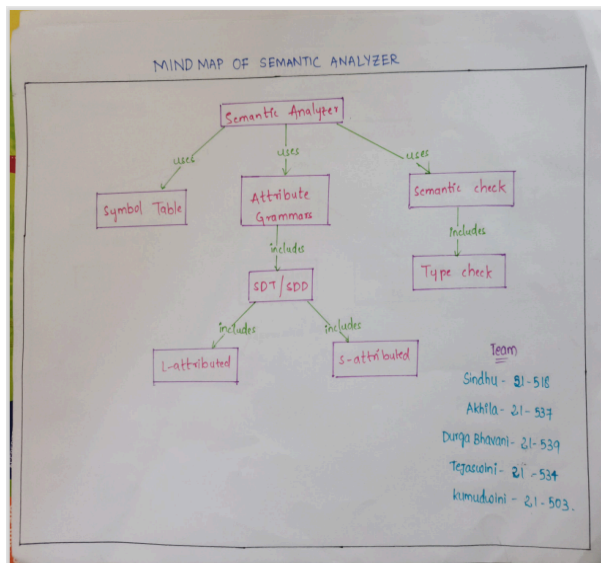 MIND MAP OF SEMANTIC ANALYZER
Semantic Analyzer
uses
uses
uses
Symbol Table
Attribute
Grammars
Semantic check
includes
includes
SDT/SDD
Type check
includes
includes
L-attributed
S-attributed
Team
Sindhu - 21-518
Akhila - 21-537
Durga Bhavani - 21-539
Tejaswini - 21 - 534
kumudwini - 21-503.